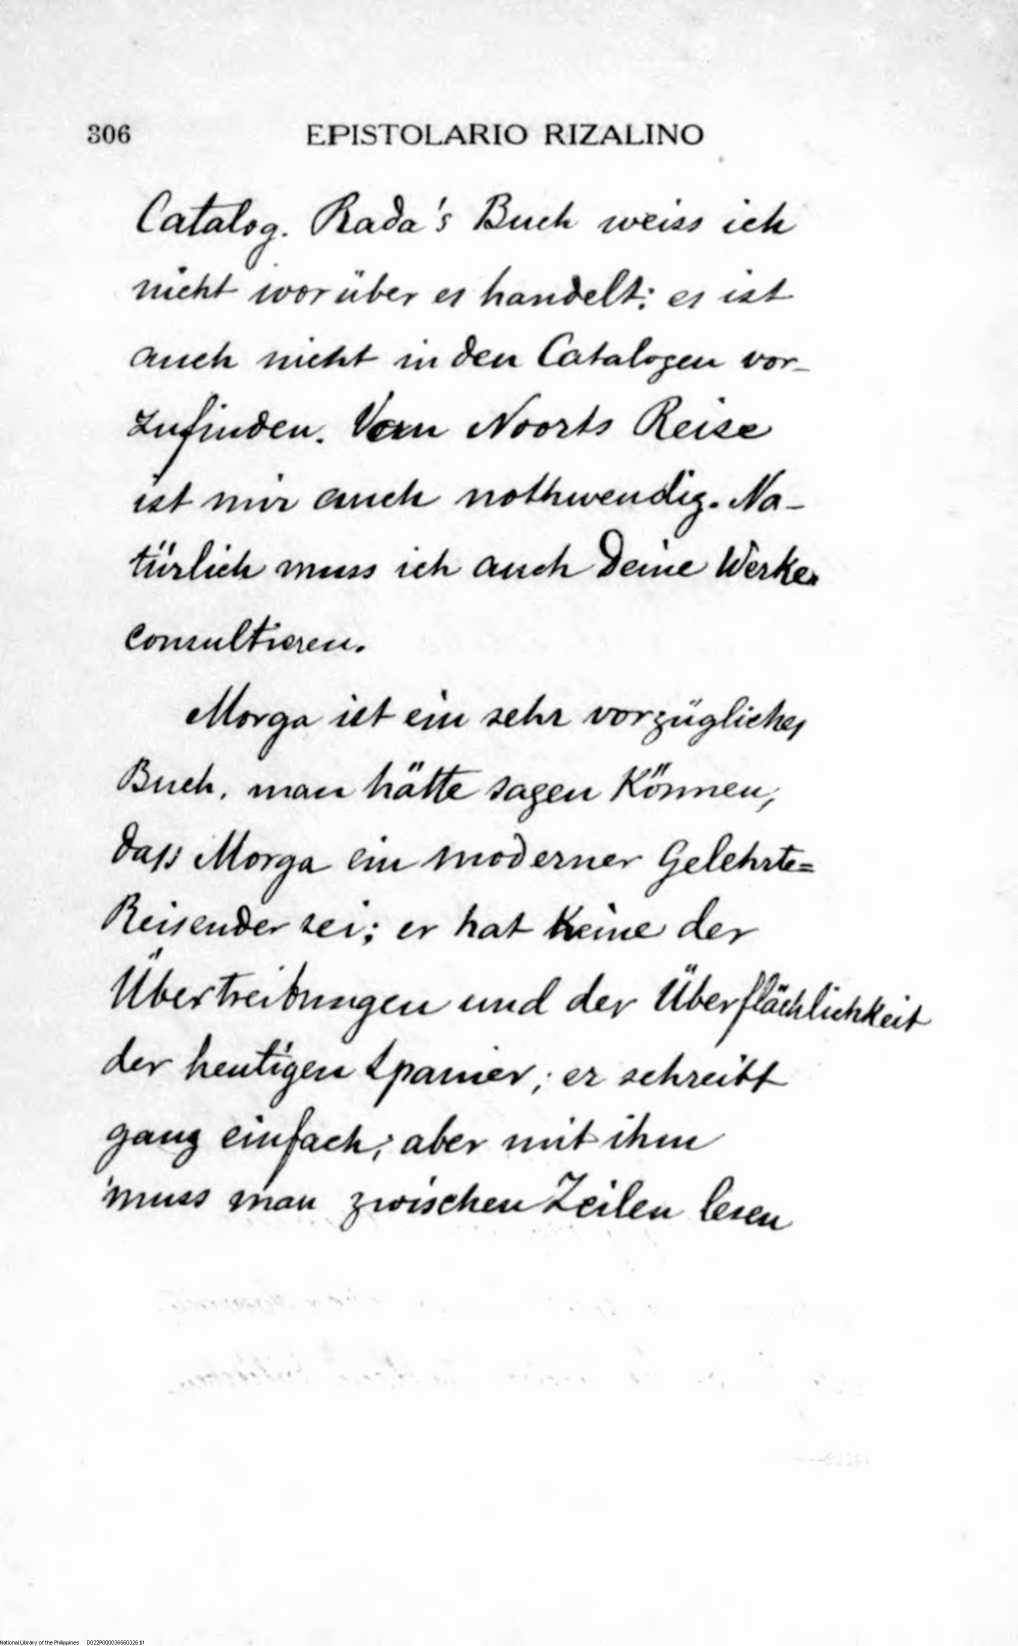 306 EPISTOLARIO RIZALINO
Catalog. Rada's Buch weiss ich
nicht worüber es handelt; es ist
auch nicht in den Catalogen vor-
zufinden. Noorts Reise
ist mir auch nothwendig. Na-
türlich muss ich auch Deine Werke
consultieren.
Morga ist ein sehr vorzügliches
Buch. man hätte sagen Können,
daß Morga ein moderner Gelehrte=
Reisender sei; er hat Keine der
Übertreibungen und der Überflächlichkeit
der heutigen Spanier; er schreibt
ganz einfach; aber mit ihm
muss man zwischen Zeilen lesen
National Library of the Philippines